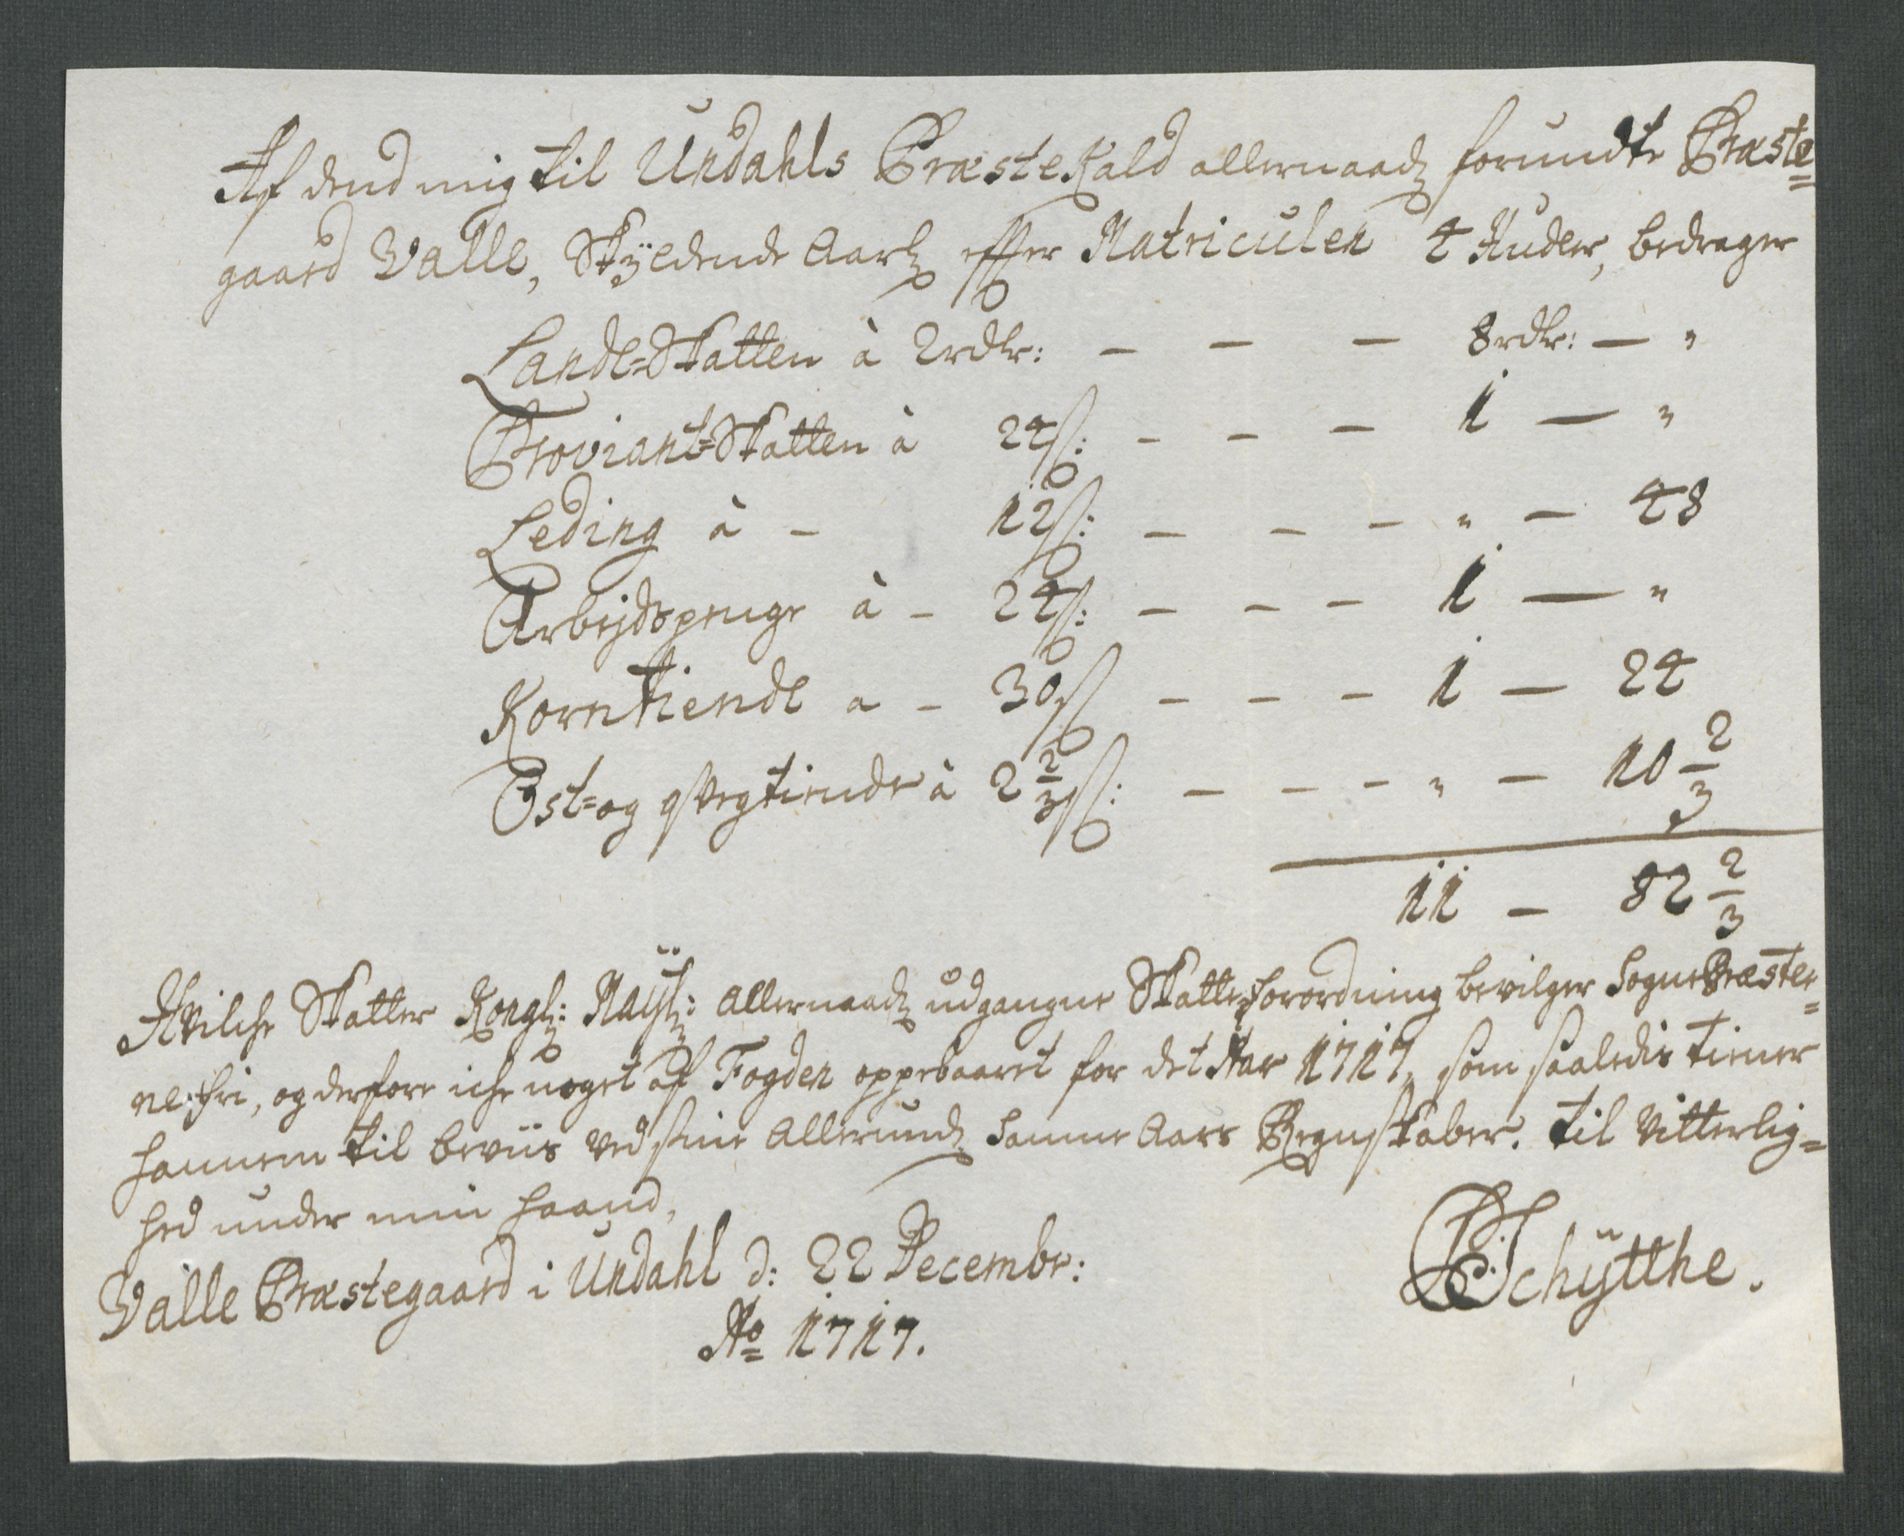 Af dend mig til Undahls PræsteKald allernaadt forundte Præste=
gaard Valle, Skÿldende Aarl effter Matriculen 4 Huder, bedrager
Landt=Skatten à 2rdlr: — — — 8rdlr: — "
Proviant=Skatten à 24 ß: — — — 1 — "
Leding à — 12 ß: — — — " — 48
Arbejdspenge à — 24 ß: — — — 1 — "
Korntiende a — 30 ß — — — 1 — 24
Ost=og qvegtiende à 2 2/3 ß: — — — " — 10 2/3
11 — 82 2/3
Hvilche Skatter Kongl: Maÿt: allernaadt udgangne Skatte forordning bevilger SognePræster=
ne fri, og derfore iche noget af Fogden oppebaaret for det Aar 1717, som saaledis tiener
hannem til beviis ved sine Allerundt samme Aars Regnskaber. til Vitterlig=
hed under min haand,
Valle Præstegaard i Undahl d: 22 Decembr:
Ao 1717.
PSchÿtthe.